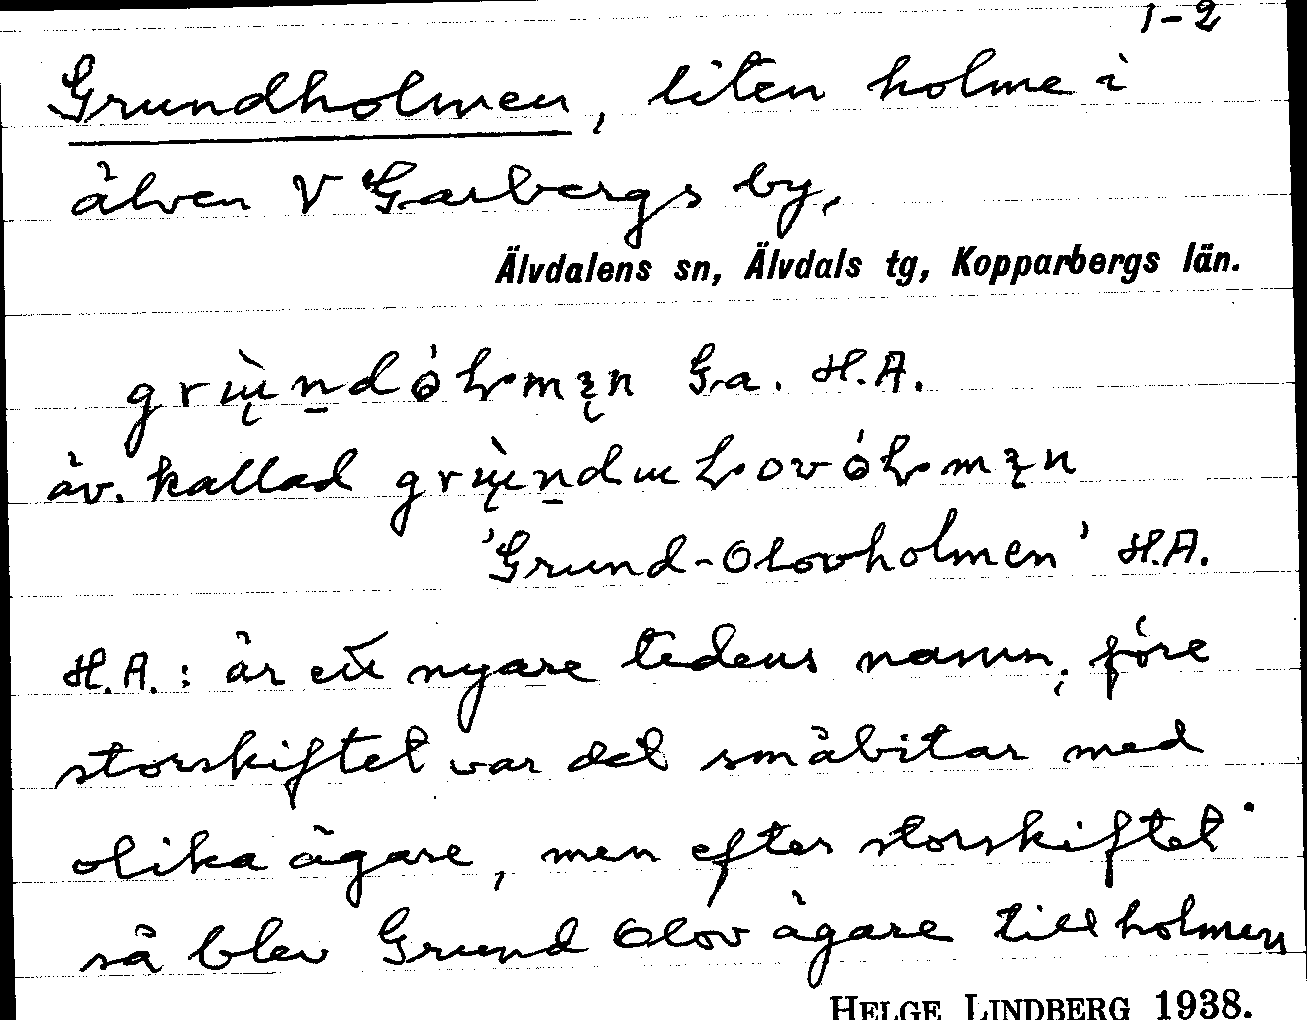 1-2
Grundholmen, liten holme i
älven V Garbergs by,
Älvdalens sn, Älvdals tg, Kopparbergs län.
Ga. H.A.
äv. kallad
'Grund-Olovholmen' H.A.
H.A.: är ett nyare tidens namn, före
storskiftet var det småbitar med
olika ägare, men efter storskiftet
så blev Grund Olov ägare till holmen
HELGE LINDBERG 1938.